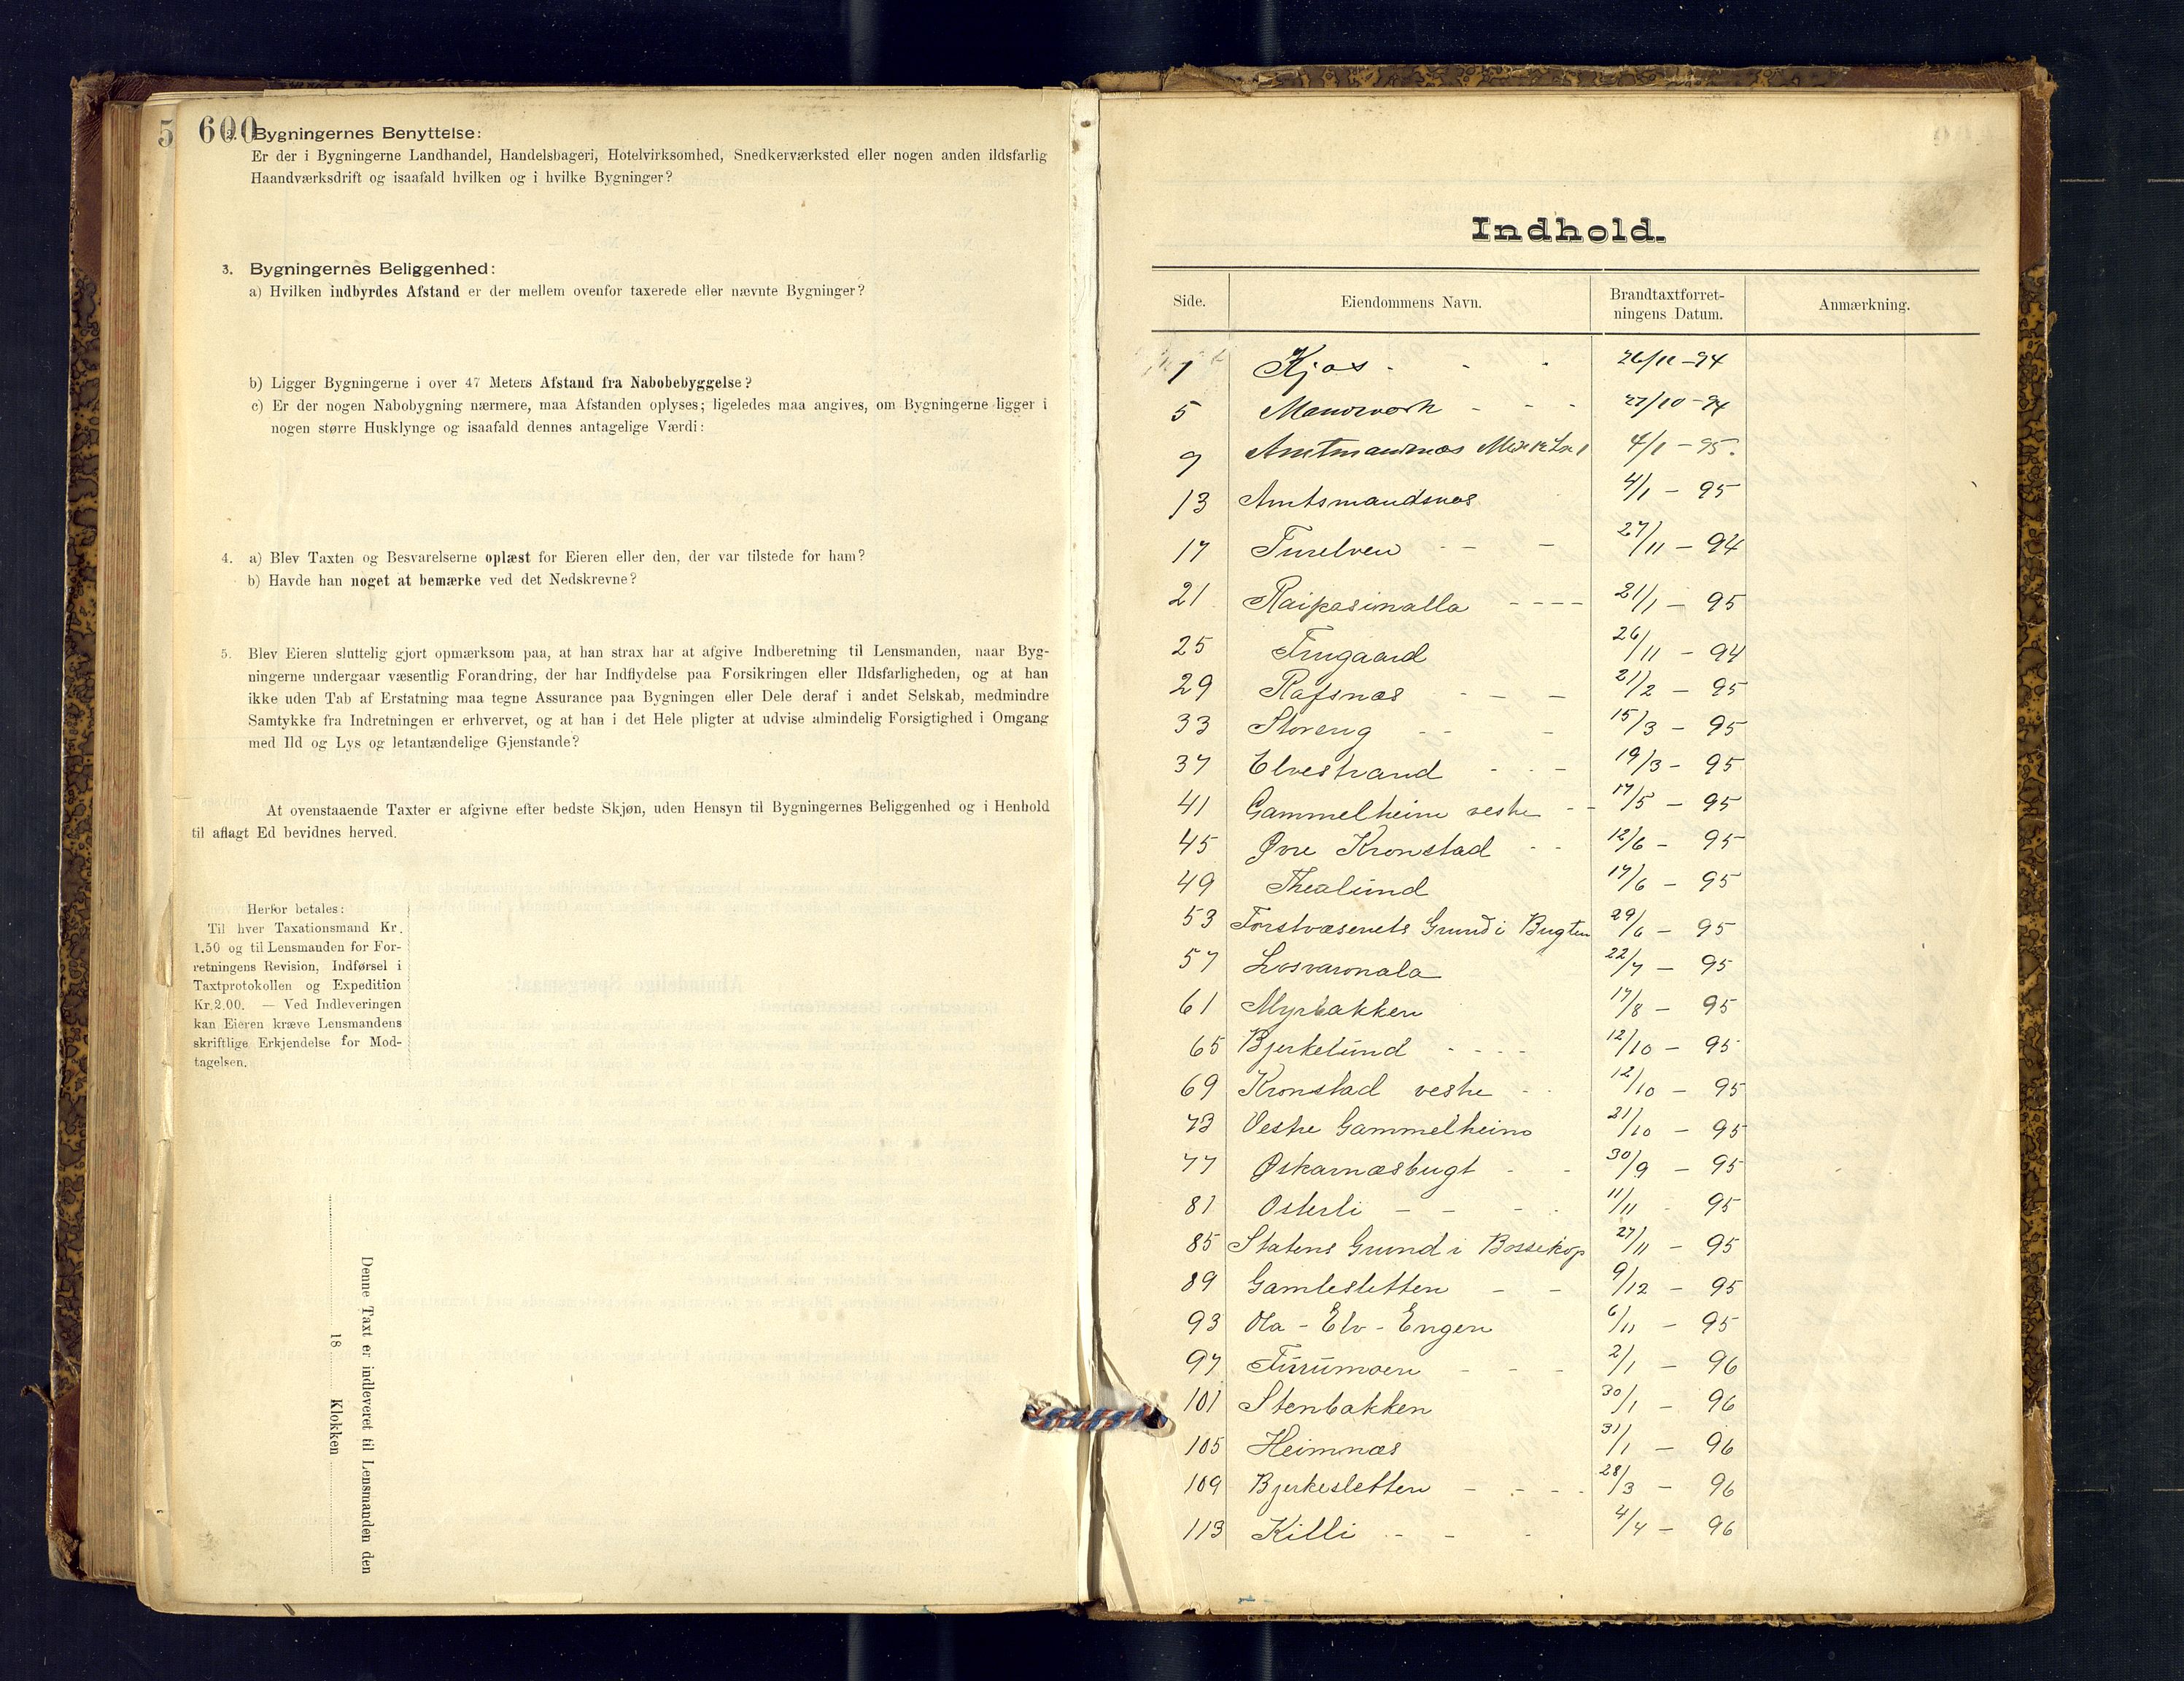 5 600
2. Bygningernes Benyttelse:
Er der i Bygningerne Landhandel, Handelsbageri, Hotelvirksomhed, Snedkerværksted eller nogen anden ildsfarlig
Haandværksdrift og isaafald hvilken og i hvilke Bygninger?
3. Bygningernes Beliggenhed:
a) Hvilken indbyrdes Afstand er der mellem ovenfor taxerede eller nævnte Bygninger?
b) Ligger Bygningerne i over 47 Meters Afstand fra Nabobebyggelse?
c) Er der nogen Nabobygning nærmere, maa Afstanden oplyses; ligeledes maa angives, om Bygningerne ligger i
nogen større Husklynge og isaafald dennes antagelige Værdi:
4. a) Blev Taxten og Besvarelserne oplæst for Eieren eller den, der var tilstede for ham?
b) Havde han noget at bemærke ved det Nedskrevne?
5. Blev Eieren sluttelig gjort opmærksom paa, at han strax har at afgive Indberetning til Lensmanden, naar Byg-
ningerne undergaar væsentlig Forandring, der har Indflydelse paa Forsikringen eller Ildsfarligheden, og at han
ikke uden Tab af Erstatning maa tegne Assurance paa Bygningen eller Dele deraf i andet Selskab, medmindre
Samtykke fra Indretningen er erhvervet, og at han i det Hele pligter at udvise almindelig Forsigtighed i Omgang
med Ild og Lys og letantændelige Gjenstande?
At ovenstaaende Taxter er afgivne efter bedste Skjøn, uden Hensyn til Bygningernes Beliggenhed og i Henhold
til aflagt Ed bevidnes herved.
Herfor betales:
Til hver Taxationsmand Kr.
1.50 og til Lensmanden for For-
retningens Revision, Indførsel i
Taxtprotokollen og Expedition
Kr. 2.00. — Ved Indleveringen
kan Eieren kræve Lensmandens
skriftlige Erkjendelse for Mod-
tagelsen.
Denne Taxt er indleveret til Lensmanden den
18 Klokken
Indhold.
Side. Eiendommens Navn. Brandtaxtforret-ningens Datum. Anmærkning.
1 Kjos - - - 26/11 - 94
5 - - - 27/10 - 94
9 Amtmandnæs 4/1 - 95.
13 Amtsmandsnæs 4/1 - 95
17 Furelven - - - 27/11 - 94
21 Raipasimalla - - - - 21/1 - 95
25 Furugaard 26/11 - 94
29 Rafsnæs - - - 21/2 - 95
33 Storeng - - - 15/3 - 95
37 Elvestrand - - - 19/3 - 95
41 Gammelheim vestre - - 17/5 - 95
45 Øvre Kronstad - - 12/6 - 95
49 Thealund 17/6 - 95
53 Forstvæsenets Grund i Bugten 29/6 - 95
57 Losvaronala 22/7 - 95
61 Myrbakken 17/8 - 95
65 Bjerkelund - - - - 12/10 - 95
69 Kronstad vestre - - 12/10 - 95
73 Vestre Gammelheim 21/10 - 95
77 Øskarnæsbugt - - 30/9 - 95
81 Osterli - - - - 11/11 - 95
85 Statens Grund i Bossekop 27/11 - 95
89 Gamlesletten - - 9/12 - 95
93 Ola - Elv - Engen 6/11 - 95
97 Furumoen - - - 2/1 - 96
101 Stenbakken 30/1 - 96
105 Heimnæs 31/1 - 96
109 Bjerkesletten - - - - 28/3 - 96
113 Killi - - - 4/4 - 96